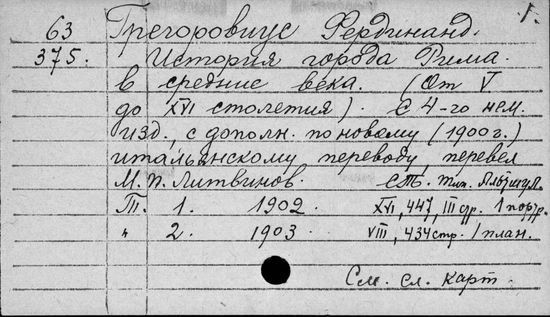 1.
63 Грегоровиус Фердинанд.
375. История города Рима
в средние века. (От V
до XVI столетия). С 4-го нем.
изд., с дополн. по новому (1900 г.)
итальянскому переводу, перевел
М. П. Литвинов. Тип.
Т. 1. 1902. XVI, 447, III стр. 1 портр.
" 2. 1903. VIII, 434 стр. 1 план.
См. сл. карт.